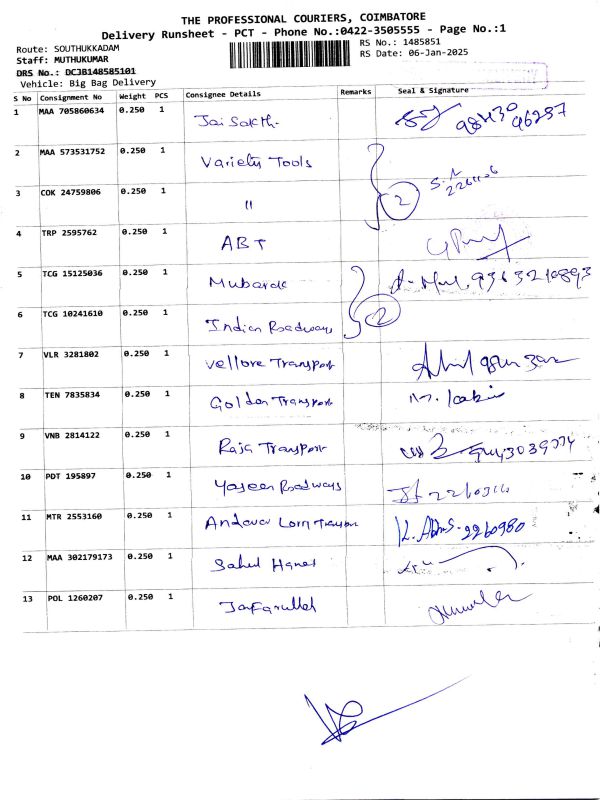 THE PROFESSIONAL COURIERS, COIMBATORE
Delivery Runsheet - PCT - Phone No.:0422-3505555 - Page No.:1
Route: SOUTHUKKADAM
RS No.: 1485851
Staff: MUTHUKUMAR
RS Date: 06-Jan-2025
DRS No.: DCJB148585101
Vehicle: Big Bag Delivery
S No Consignment No Weight PCS Consignee Details Remarks Seal & Signature
1 MAA 705860634 0.250 1 Jai Sakthi
2 MAA 573531752 0.250 1 Variety Tools
3 COK 24759806 0.250 1 " 2
4 TRP 2595762 0.250 1 ABT
5 TCG 15125036 0.250 1 Mubarak
6 TCG 10241610 0.250 1 Indian Roadways 2
7 VLR 3281802 0.250 1 Vellore Transport
8 TEN 7835834 0.250 1 Golden Transport
9 VNB 2814122 0.250 1 Raja Transport
10 PDT 195897 0.250 1 Yaseen Roadways
11 MTR 2553160 0.250 1 Andavar Lorry Transport 2260980
12 MAA 302179173 0.250 1 Sahul
13 POL 1260207 0.250 1 Jafarullah